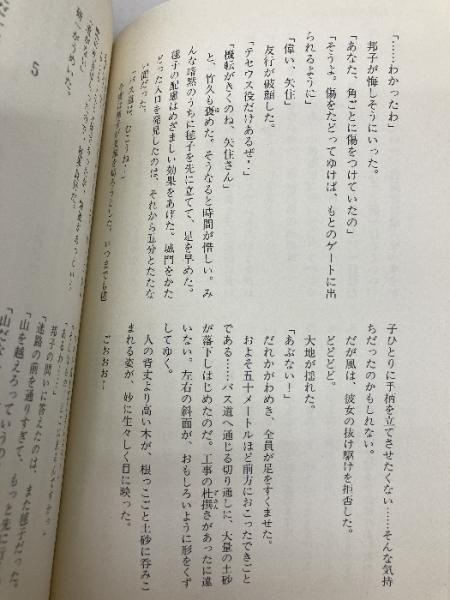 「……わかったわ」
邦子が悔しそうにいった。
「あなた、角ごとに傷をつけていたの」
「そうよ。傷をたどってゆけば、もとのゲートに出
られるように」
「偉い、矢住」
友行が破顔した。
「テセウス役だけあるぜ・」
「機転がきくのね、矢住さん」
と、竹久も褒めた。そうなると時間が惜しい。み
んな暗然のうちに毬子を先に立てて、足を早めた。
毬子の配慮はめざましい効果をあげた。城門をかた
どった入口を発見したのは、それから五分とたたな
い間だった。
「バス道は、むこうね！」
子ひとりに手柄を立てさせたくない……そんな気持
ちだったのかもしれない。
だが風は、彼女の抜け駆けを拒否した。
どどどど。
大地が揺れた。
「あぶない！」
だれかがわめき、全員が足をすくませた。
およそ五十メートルほど前方におこったできごと
である……バス道へ通じる切り通しに、大量の土砂
が落下しはじめたのだ。工事の杜撰さがあったに違
いない。左右の斜面が、おもしろいように形をくず
してゆく。
人の背丈より高い木が、根っこごと土砂に呑みこ
まれる姿が、妙に生々しく目に映った。
ごおおお…
5
邦子の問いに答えたのは、また毬子だった。
「迷路の前を通りすぎて、もっと先に
「山を越えろっていうの